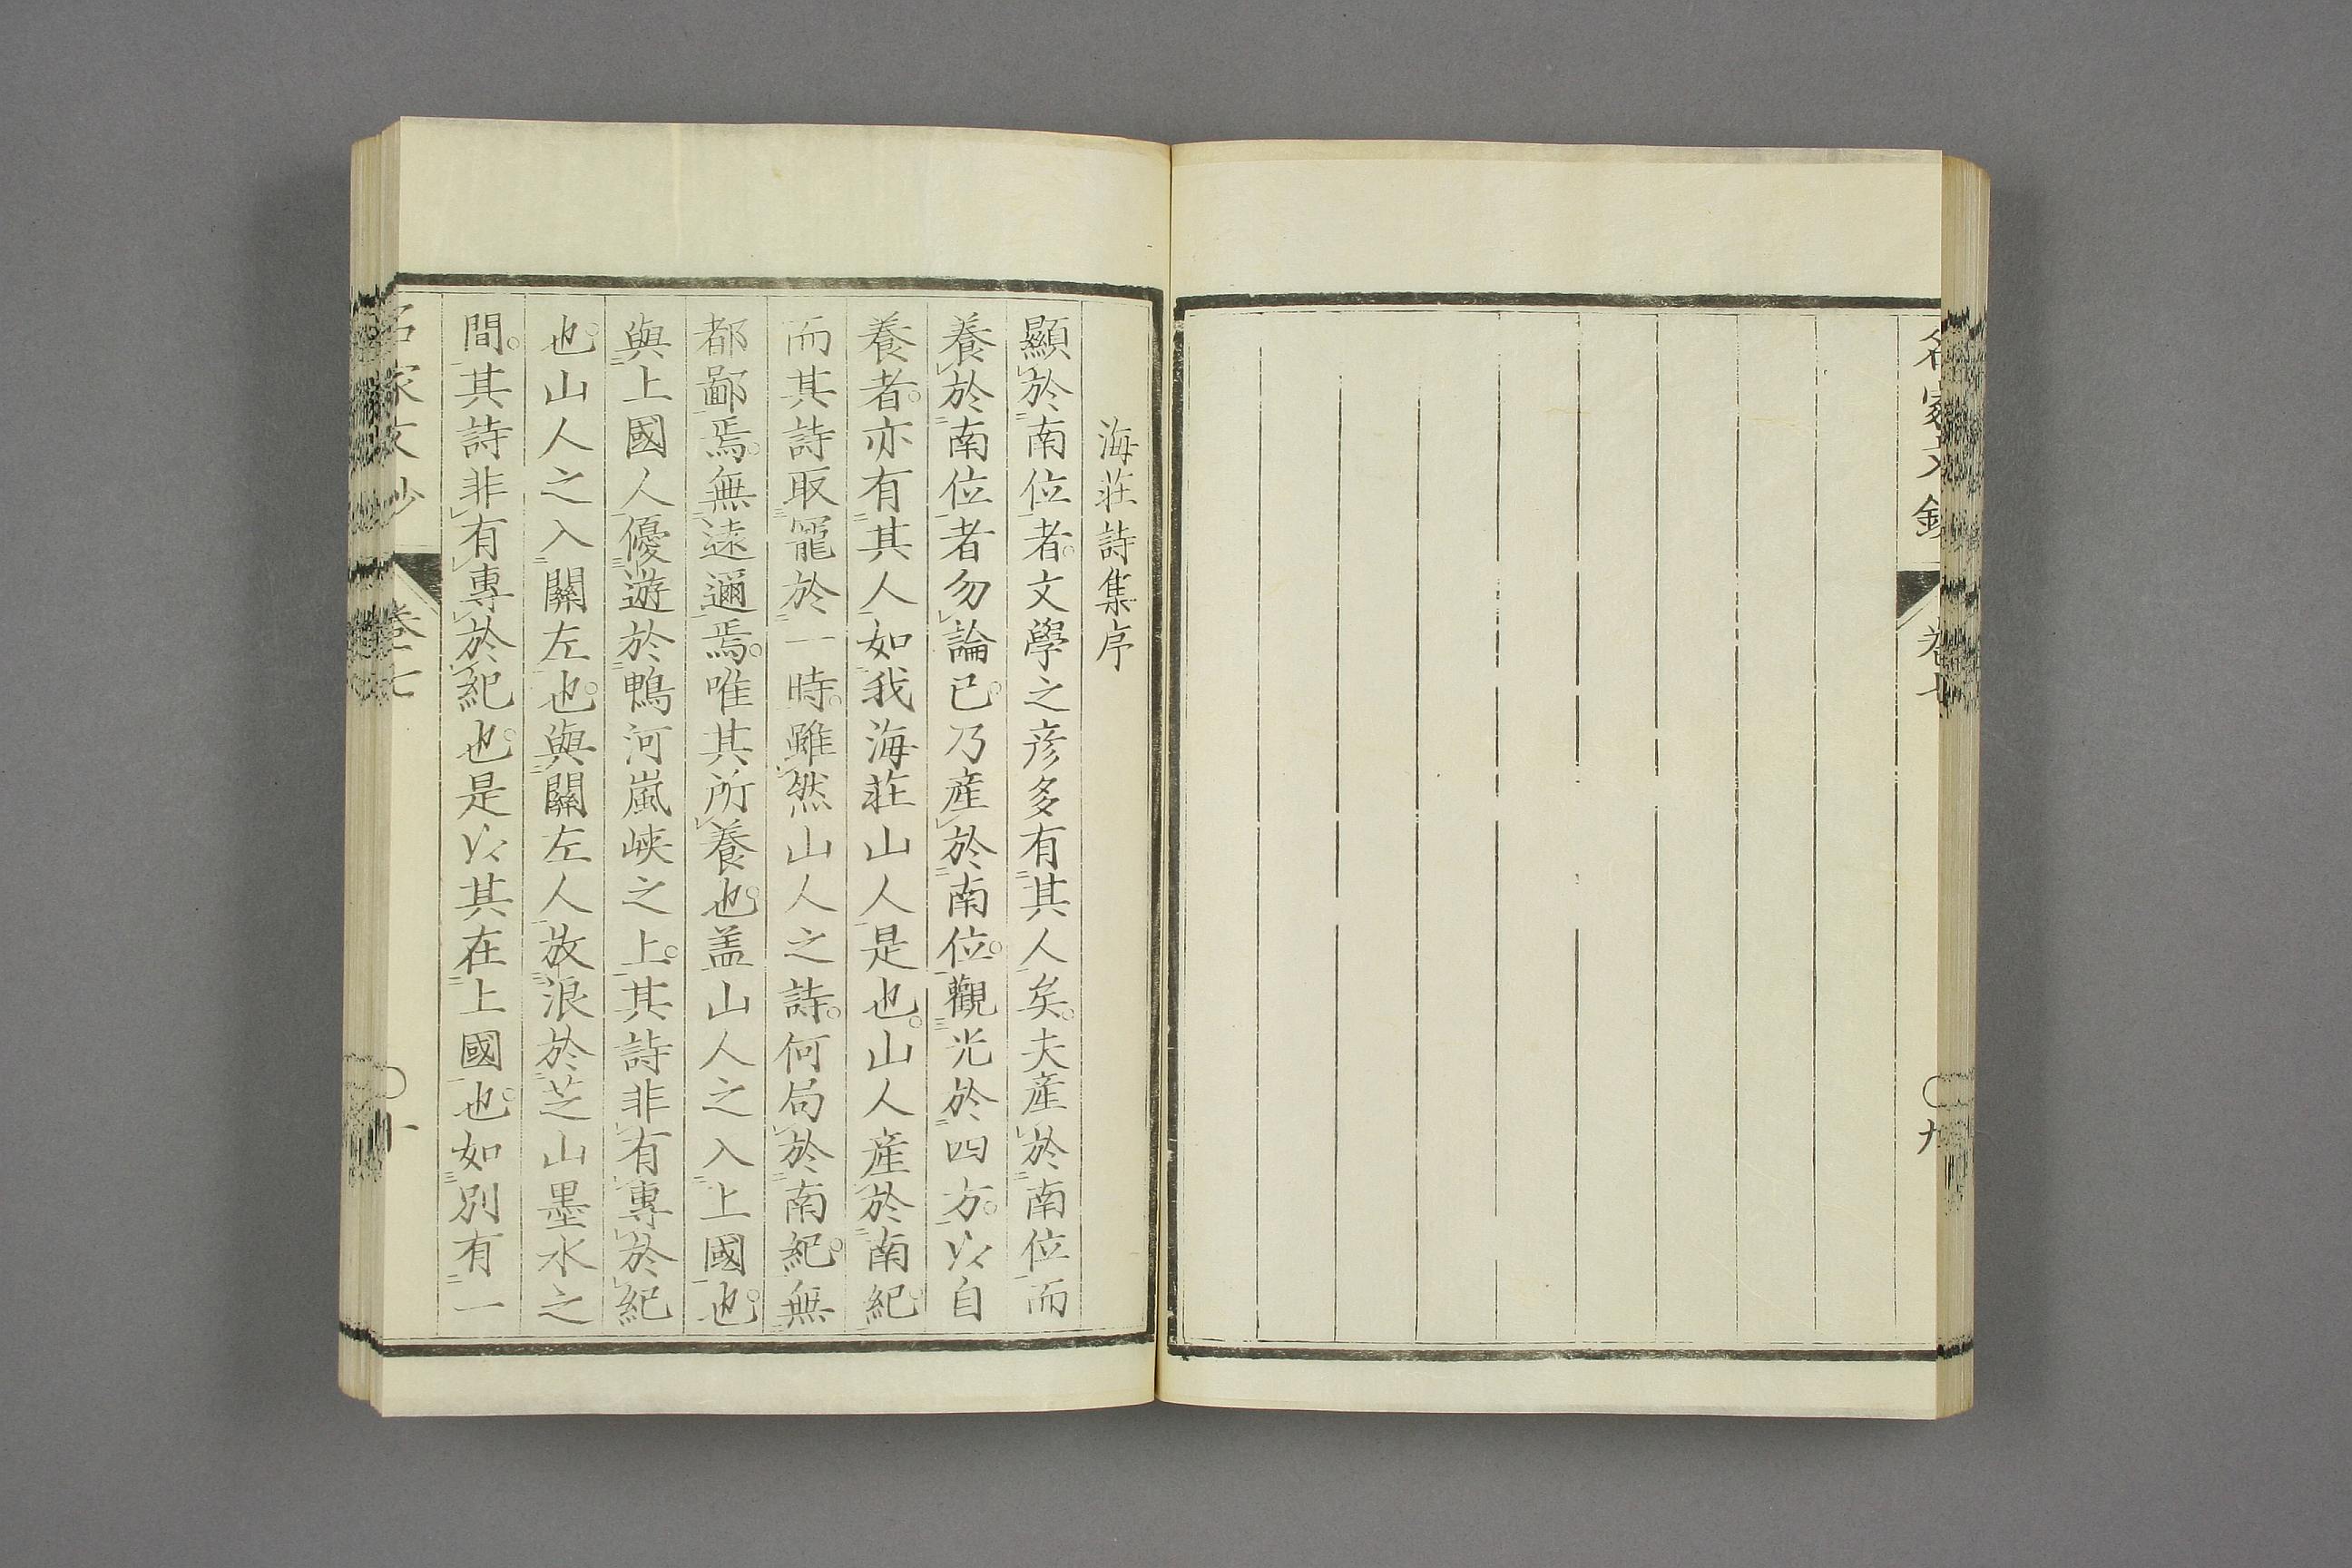 名家文鈔 卷七 〇九
海莊詩集序
顯於南位者。文學之彦多有其人矣。夫產於南位而
養於南位者勿論已。乃產於南位。觀光於四方。以自
養者。亦有其人如我海莊山人是也。山人產於南紀。
而其詩取寵於一時。雖然山人之詩。何局於南紀。無
都鄙焉。無遠邇焉。唯其所養也。盖山人之入上國也。
與上國人優遊於鴨河嵐峽之上。其詩非有專於紀
也。山人之入關左也。與關左人放浪於芝山墨水之
間。其詩非有專於紀也。是以其在上國也。如別有一
名家文鈔 卷七 〇十